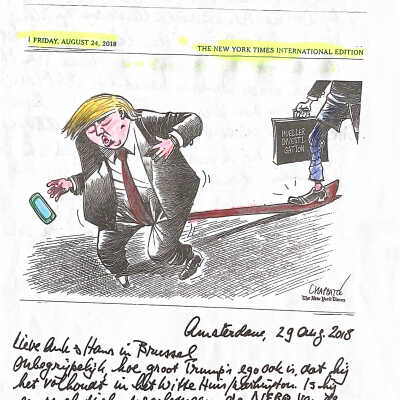 FRIDAY, AUGUST 24, 2018
THE NEW YORK TIMES INTERNATIONAL EDITION
MUELLER
INVESTI
GATION
CHAPPATTE
The New York Times
Amsterdam, 29 aug. 2018
Lieve Ank & Hans in Brussel
Onbegrijpelijk, hoe groot Trump's ego ook is, dat hij
het volhoudt in het Witte Huis/Washington. Is hij
de NERO van de